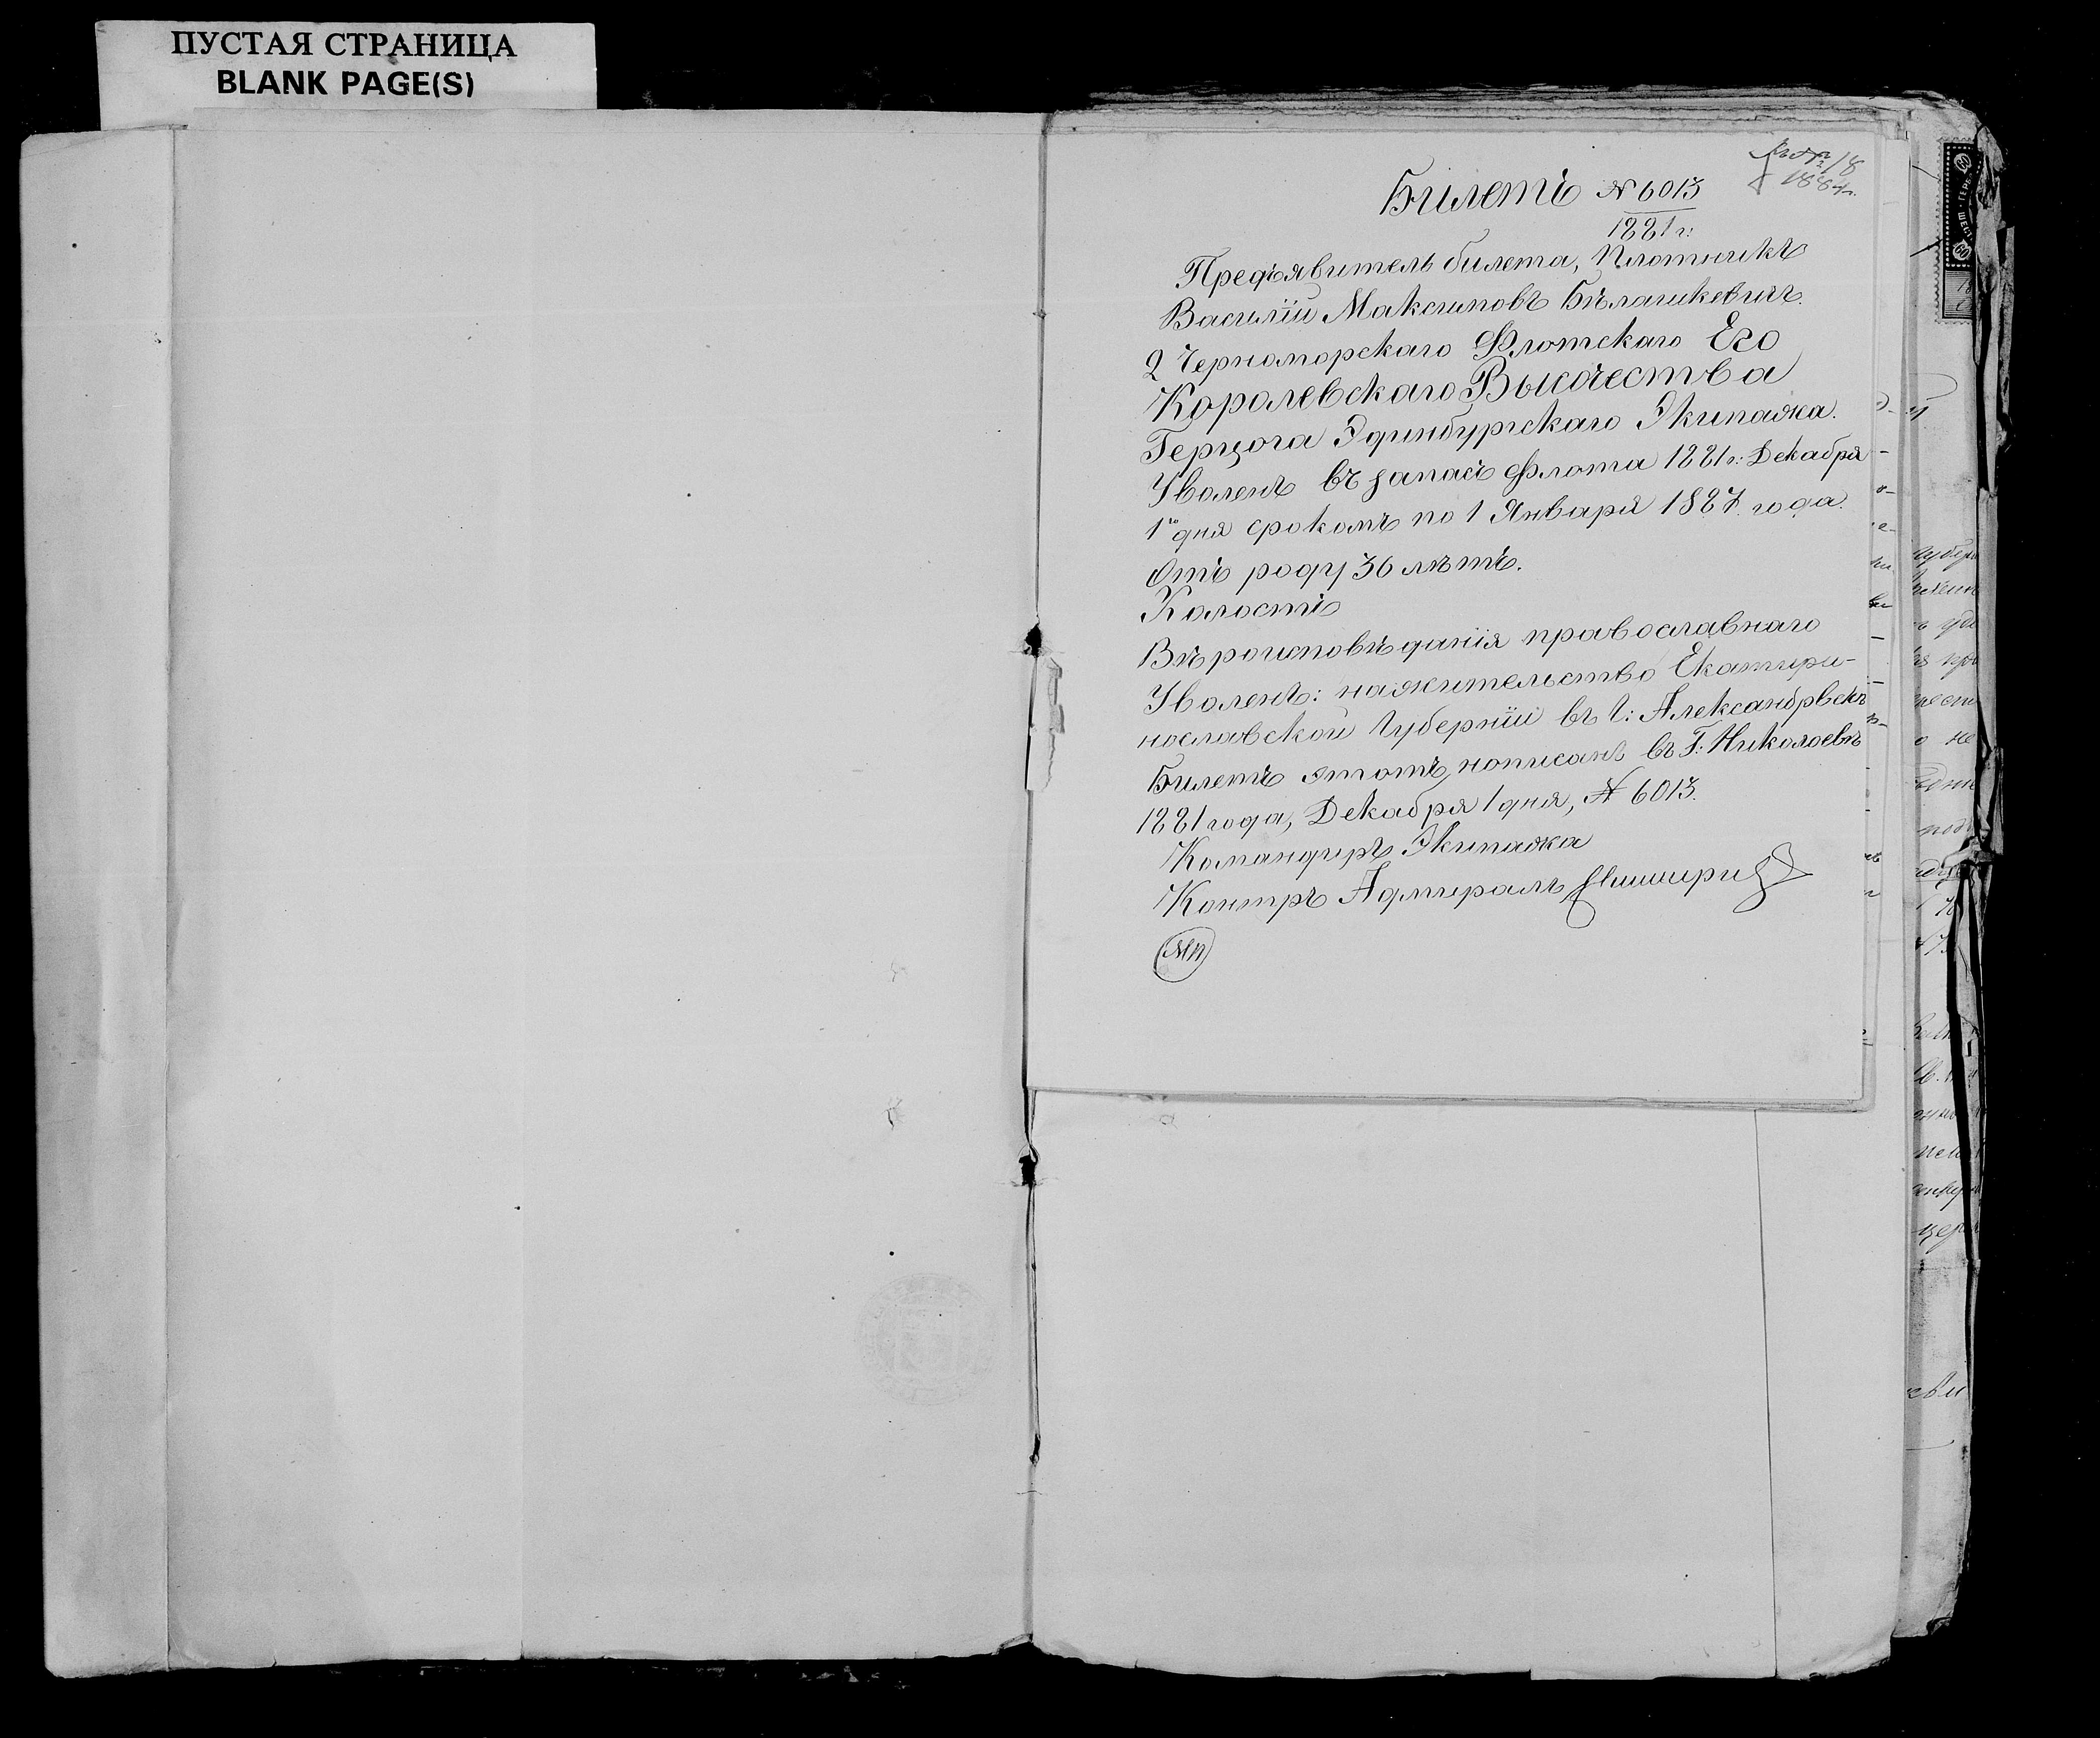 ПУСТАЯ СТРАНИЦА
BLANK PAGE(S)
18
1884г.
Билетъ № 6013
1881 г:
Предъявитель билета, Плотникъ
Василiи Максимовъ Бѣлашкевичъ.
2 Черноморскаго Флотскаго Его
Королевскаго Высочества
Герцога Эдинбургскаго Экипажа.
Уволенъ въ запасъ флота 1881 г: Декабря
1го дня срокомъ по 1 Января 1887. года.
Отъ роду 36 лѣтъ.
Холостъ
Вѣроисповѣданiя православнаго
Уволенъ: нажительство Екатири-
нославской Губернiи въ Г: Александрвскъ
Билетъ этотъ, нописанъ въ Г: Николоевѣ
1881 года, Декабря 1 дня, № 6013.
Командиръ Экипажа
Контръ Адмиралъ
МП